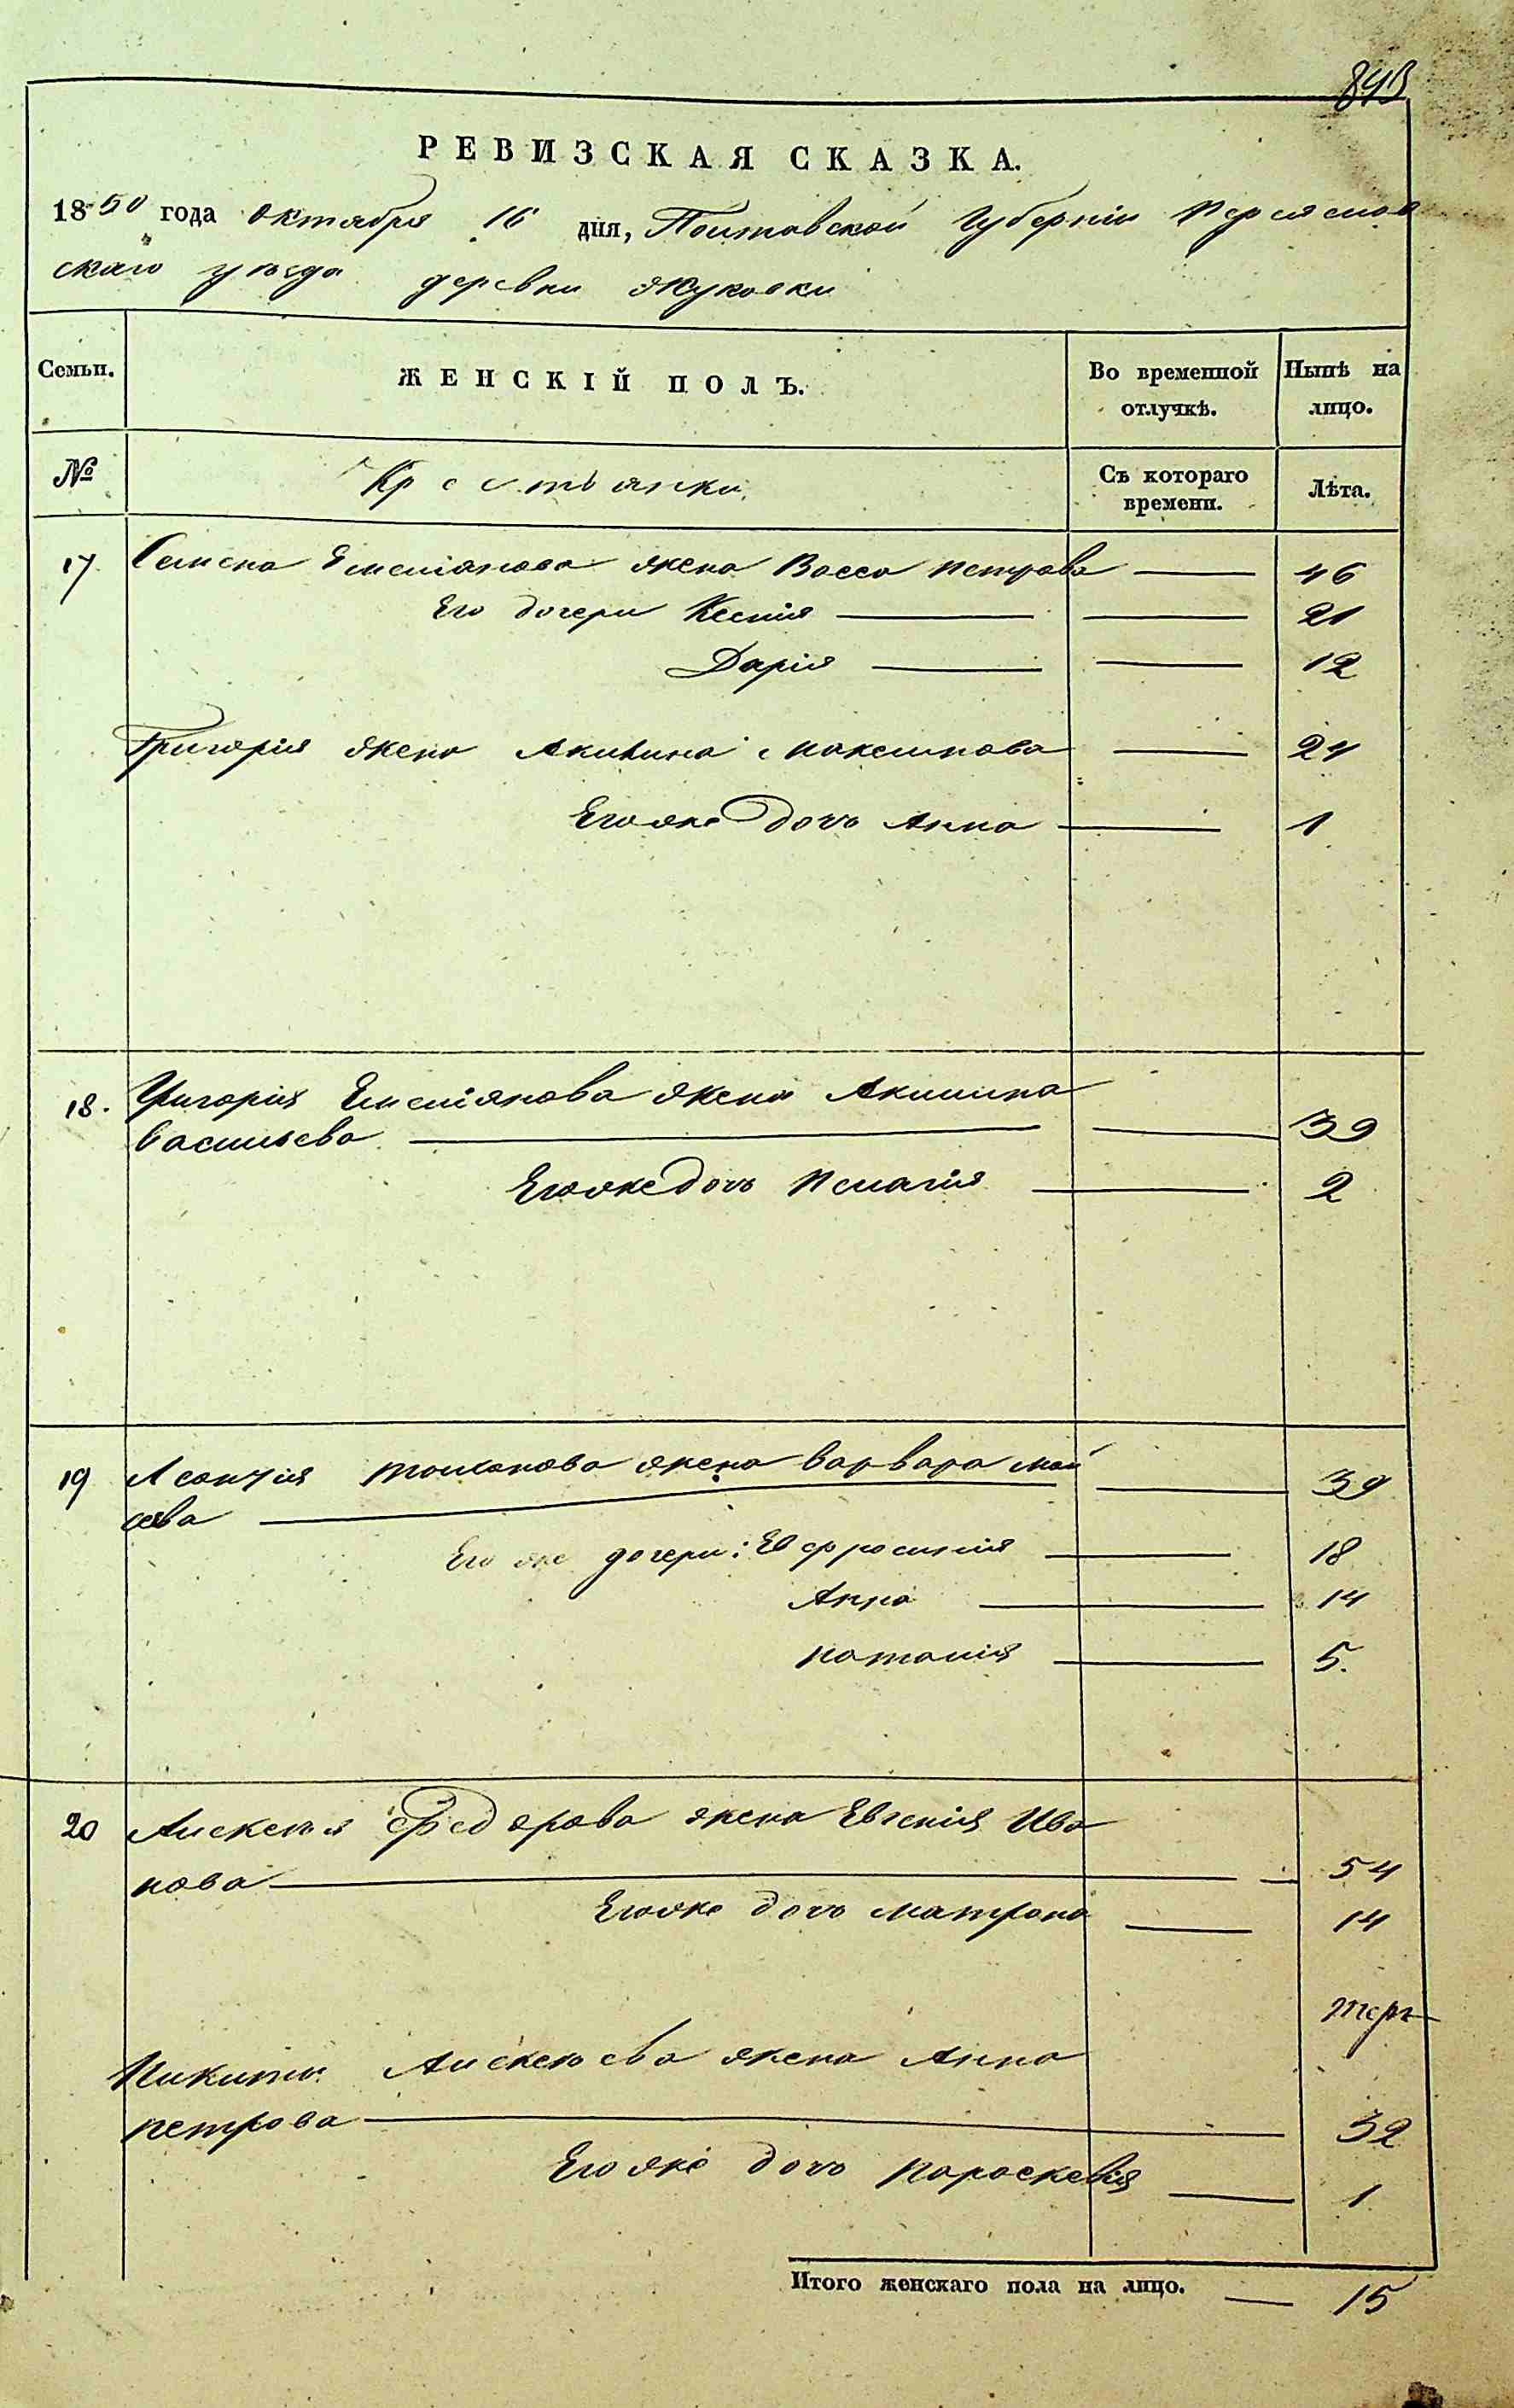 843
РЕВИЗСКАЯ СКАЗКА.
1850 года Октября 16 дня, Полтавской Губернии Переяслов
скаго уѣзда деревни Жуковки
Семьи. ЖЕНСКІЙ ПОЛЪ. Во временной отлучкѣ. Нынѣ на лицо.
№ Крестьянки Съ котораго времени. Лѣта.
17 Семена Емелiянова жена Васса Петрова — 46
Его дочери Ксенiя — — 21
Дарiя — — 12
Григорiя жена Акилина Максимова — 24
Его же дочь Анна — 1
18. Григорiя Емелiянова жена Акилина
Васильева — — 39
Его же дочь Пелагiя — 2
19 Леонтiя жена Варвара Мой
сеева — — 39
Его же дочери: Евфросинiя — 18
Анна — 14
Наталiя — 5.
20 Алексея Федорова жена Евгенiя Ива
нова — — 54
Его же дочь Матрона — 14
Никиты Алексеева жена Анна
Петрова — 32
Его же дочь Параскевiя — 1
Итого женскаго пола на лицо. — 15